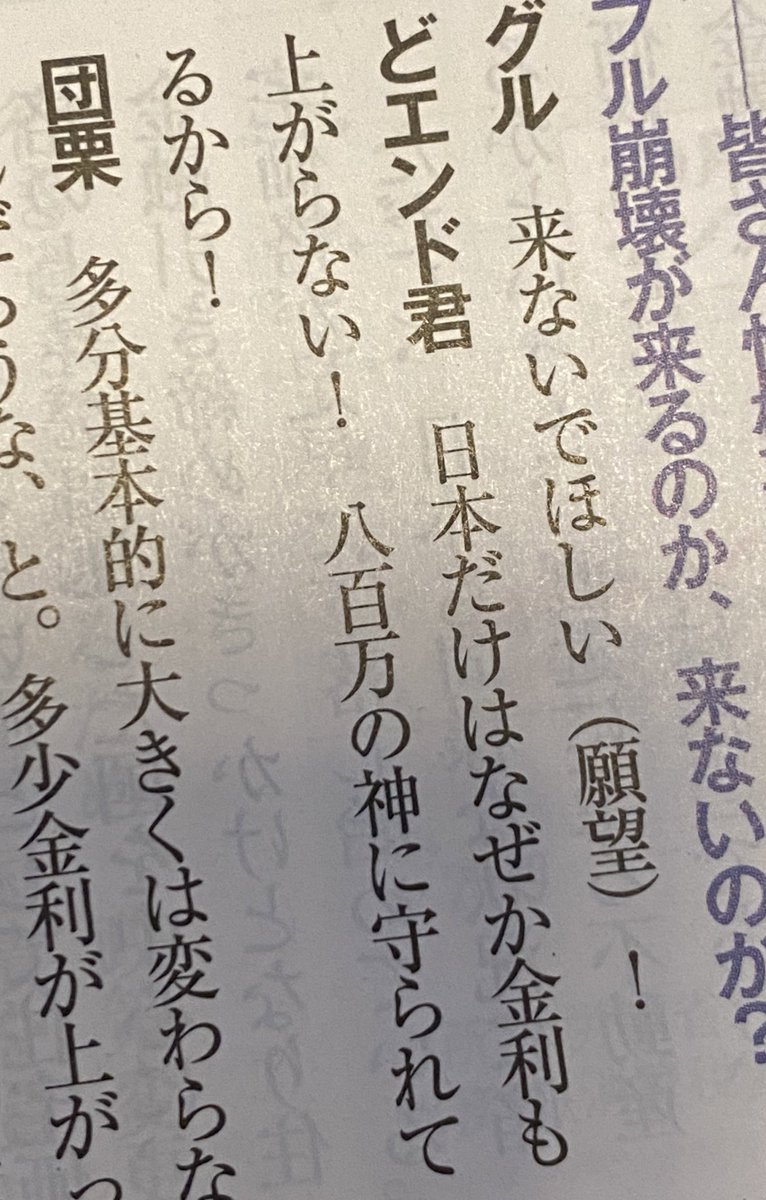 ――皆さん
フル崩壊が来るのか、来ないのか?
グル　来ないでほしい（願望）！
どエンド君　日本だけはなぜか金利も
上がらない！　八百万の神に守られて
るから！
団栗　多分基本的に大きくは変わらな
うな、と。多少金利が上がっ